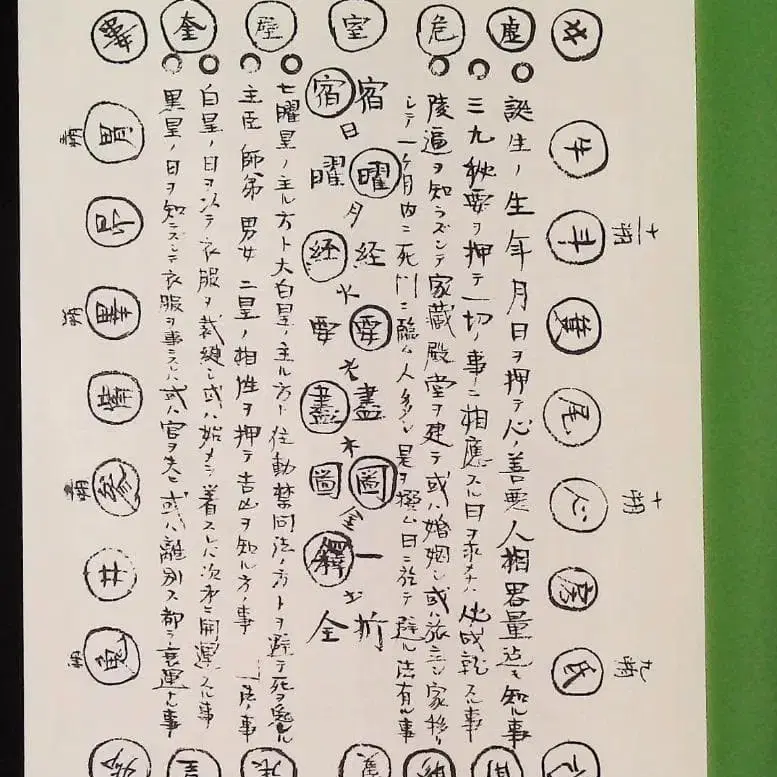 女
虚
危
室
壁
奎
牛
斗
十一朔
尾
心
十朔
房
氐
九朔
誕生ノ生年月日ヲ押テ心ノ善悪人相器量迄モ知ル事
三九秘要ヲ押テ一切ノ事ニ相應スル日ヲ求メナハ必成就スル事
陵逼ヲ知ラズシテ家蔵殿堂ヲ建テ或ハ婚姻シ或ハ旅立シ家移リ
シテ一ヶ月内ニ死門ニ臨ム人多シ是ヲ撰ム日ニ於テ避ル法有ル事
宿曜経要盡圖一折
日月火水木金土
宿曜経要盡圖釋全
七曜星ノ主ル方ト大白星ノ主ル方ト往動禁同法ノ方トヲ避テ死ヲ免ル
主臣師弟男女二星ノ相性ヲ押テ吉凶ヲ知ル方ノ事
白星ノ日ヲ以テ衣服ヲ裁縫シ或ハ始メテ着スレバ次第ニ開運スル事
黒星ノ日ヲ知ラズシテ衣服ヲ事スレハ或ハ官ヲ失ヒ或ハ離別ス都テ衰運ナル事
胃
畢
参
井
鬼